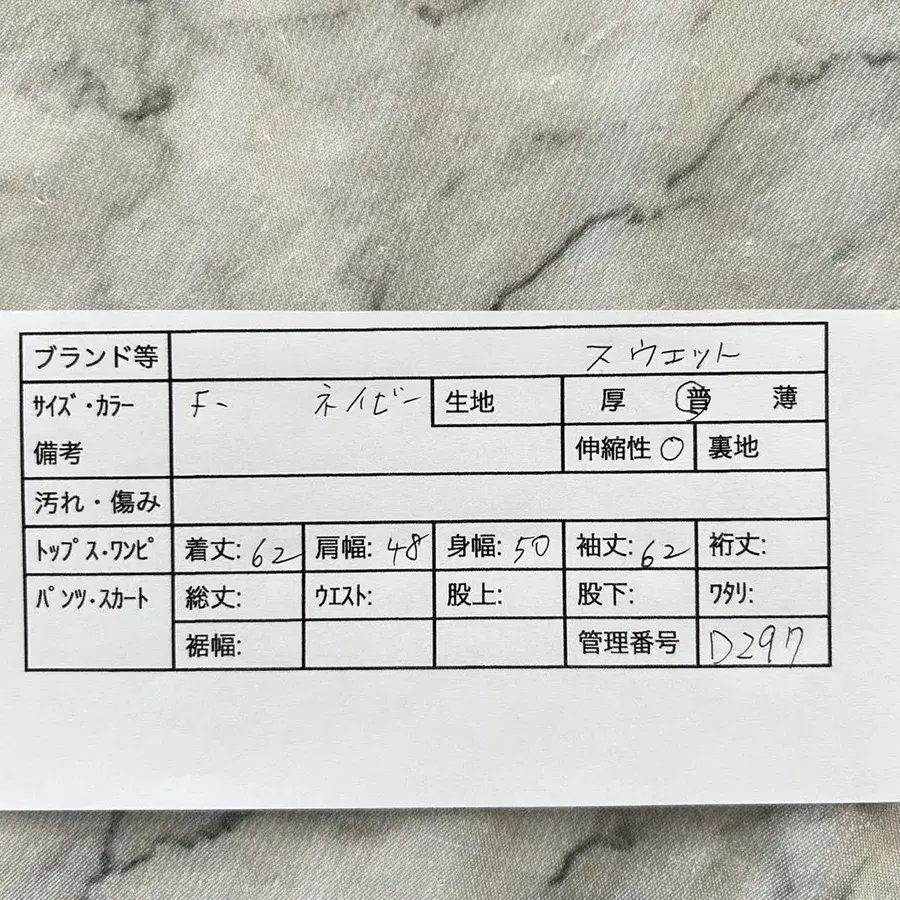 ブランド等 スウェット
サイズ・カラー F- ネイビー 生地 厚 普 薄
備考 伸縮性 〇 裏地
汚れ・傷み
トップス・ワンピ 着丈: 62 肩幅: 48 身幅: 50 袖丈: 62 裄丈:
パンツ・スカート 総丈: ウエスト: 股上: 股下: ワタリ:
裾幅: 管理番号 D297